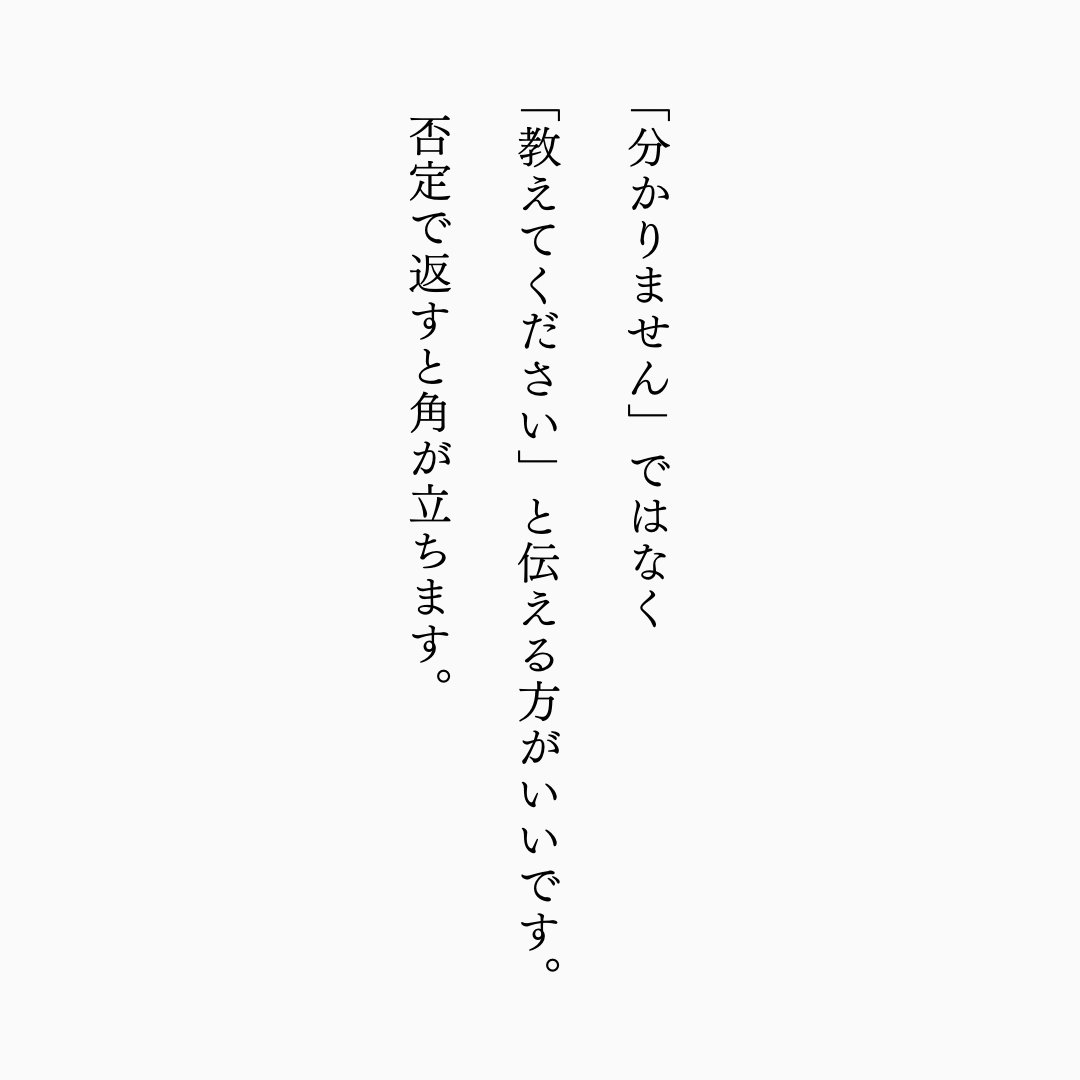 「分かりません」ではなく
「教えてください」と伝える方がいいです。
否定で返すと角が立ちます。